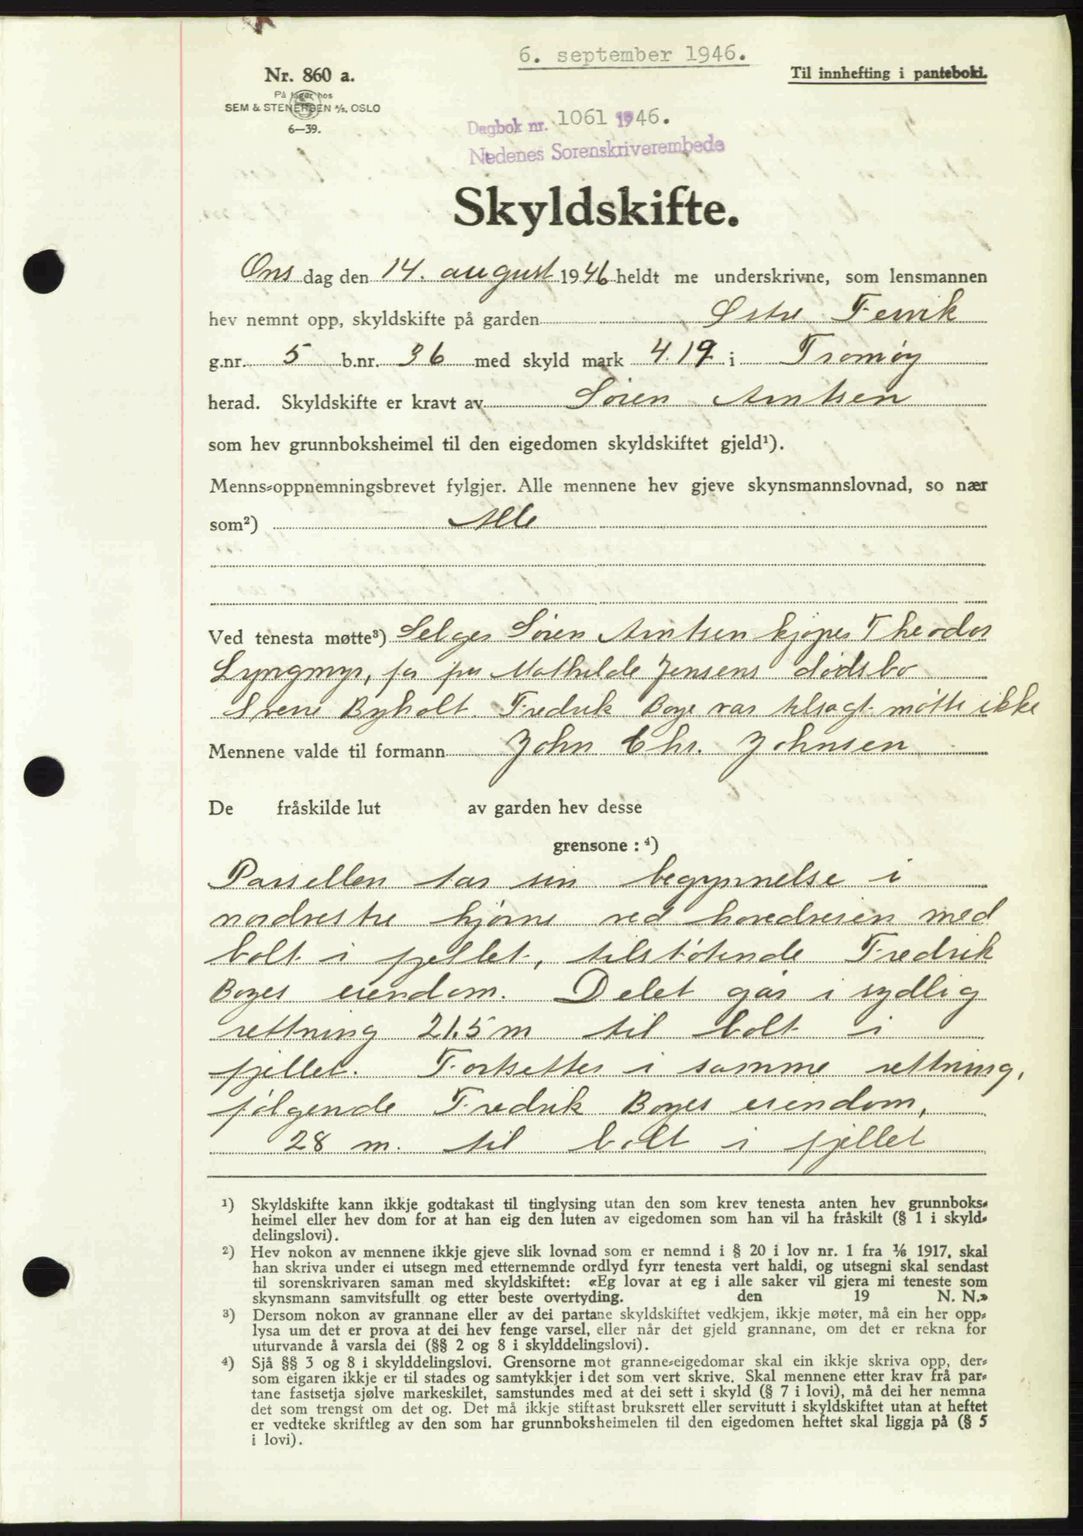 6. september 1946.
Nr. 860 a.
Til innhefting i panteboki.
På lager hos
SEM & STENERSEN A/S. OSLO
6—39.
Dagbok nr. 1061 1946.
Nedenes Sorenskriverembede
Skyldskifte.
Ons dag den 14. august 1946 heldt me underskrivne, som lensmannen
hev nemnt opp, skyldskifte på garden Østre Fervik
g.nr. 5 b.nr. 36 med skyld mark 4.19 i Tromøy
herad. Skyldskifte er kravt av Søren Arntsen
som hev grunnboksheimel til den eigedomen skyldskiftet gjeld¹).
Menns-oppnemningsbrevet fylgjer. Alle mennene hev gjeve skynsmannslovnad, so nær
som²) Alle
Ved tenesta møtte³) Selger Søren Arntsen kjøper Theodor
Lyngmyr, for fru Mathilde Jensens dødsbo
Byholt. Fredrik Boye var tilsagt møtte ikke
Mennene valde til formann John Chr. Johnsen
De fråskilde lut av garden hev desse
grensone : ⁴)
Parsellen tar sin begynnelse i
nordvestre hjørne ved hovedveien med
bolt i fjellet, tilstøtende Fredrik
Boyes eiendom. Delet går i sydlig
rettning 21.5 m til bolt i
fjellet. Fortsetter i samme rettning,
følgende Fredrik Boyes eiendom,
28 m. til bolt i fjellet
¹) Skyldskifte kann ikkje godtakast til tinglysing utan den som krev tenesta anten hev grunnboks-
heimel eller hev dom for at han eig den luten av eigedomen som han vil ha fråskilt (§ 1 i skyld-
delingslovi).
²) Hev nokon av mennene ikkje gjeve slik lovnad som er nemnd i § 20 i lov nr. 1 fra ⅙ 1917, skal
han skriva under ei utsegn med etternemnde ordlyd fyrr tenesta vert haldi, og utsegni skal sendast
til sorenskrivaren saman med skyldskiftet: «Eg lovar at eg i alle saker vil gjera mi teneste som
skynsmann samvitsfullt og etter beste overtyding. den 19 N. N.»
³) Dersom nokon av grannane eller av dei partane skyldskiftet vedkjem, ikkje møter, må ein her opp-
lysa um det er prova at dei hev fenge varsel, eller når det gjeld grannane, om det er rekna for
uturvande å varsla dei (§§ 2 og 8 i skylddelingslovi).
⁴) Sjå §§ 3 og 8 i skylddelingslovi. Grensorne mot granne-eigedomar skal ein ikkje skriva opp, der-
som eigaren ikkje er til stades og samtykkjer i det som vert skrive. Skal mennene etter krav frå par-
tane fastsetja sjølve markeskilet, samstundes med at dei sett i skyld (§ 7 i lovi), må dei her nemna
det som trengst om det og. Det må ikkje stiftast bruksrett eller servitutt i skyldskiftet utan at heftet
er vedteke skriftleg av den som har grunnboksheimelen til den eigedomen heftet skal liggja på (§ 5
i lovi).